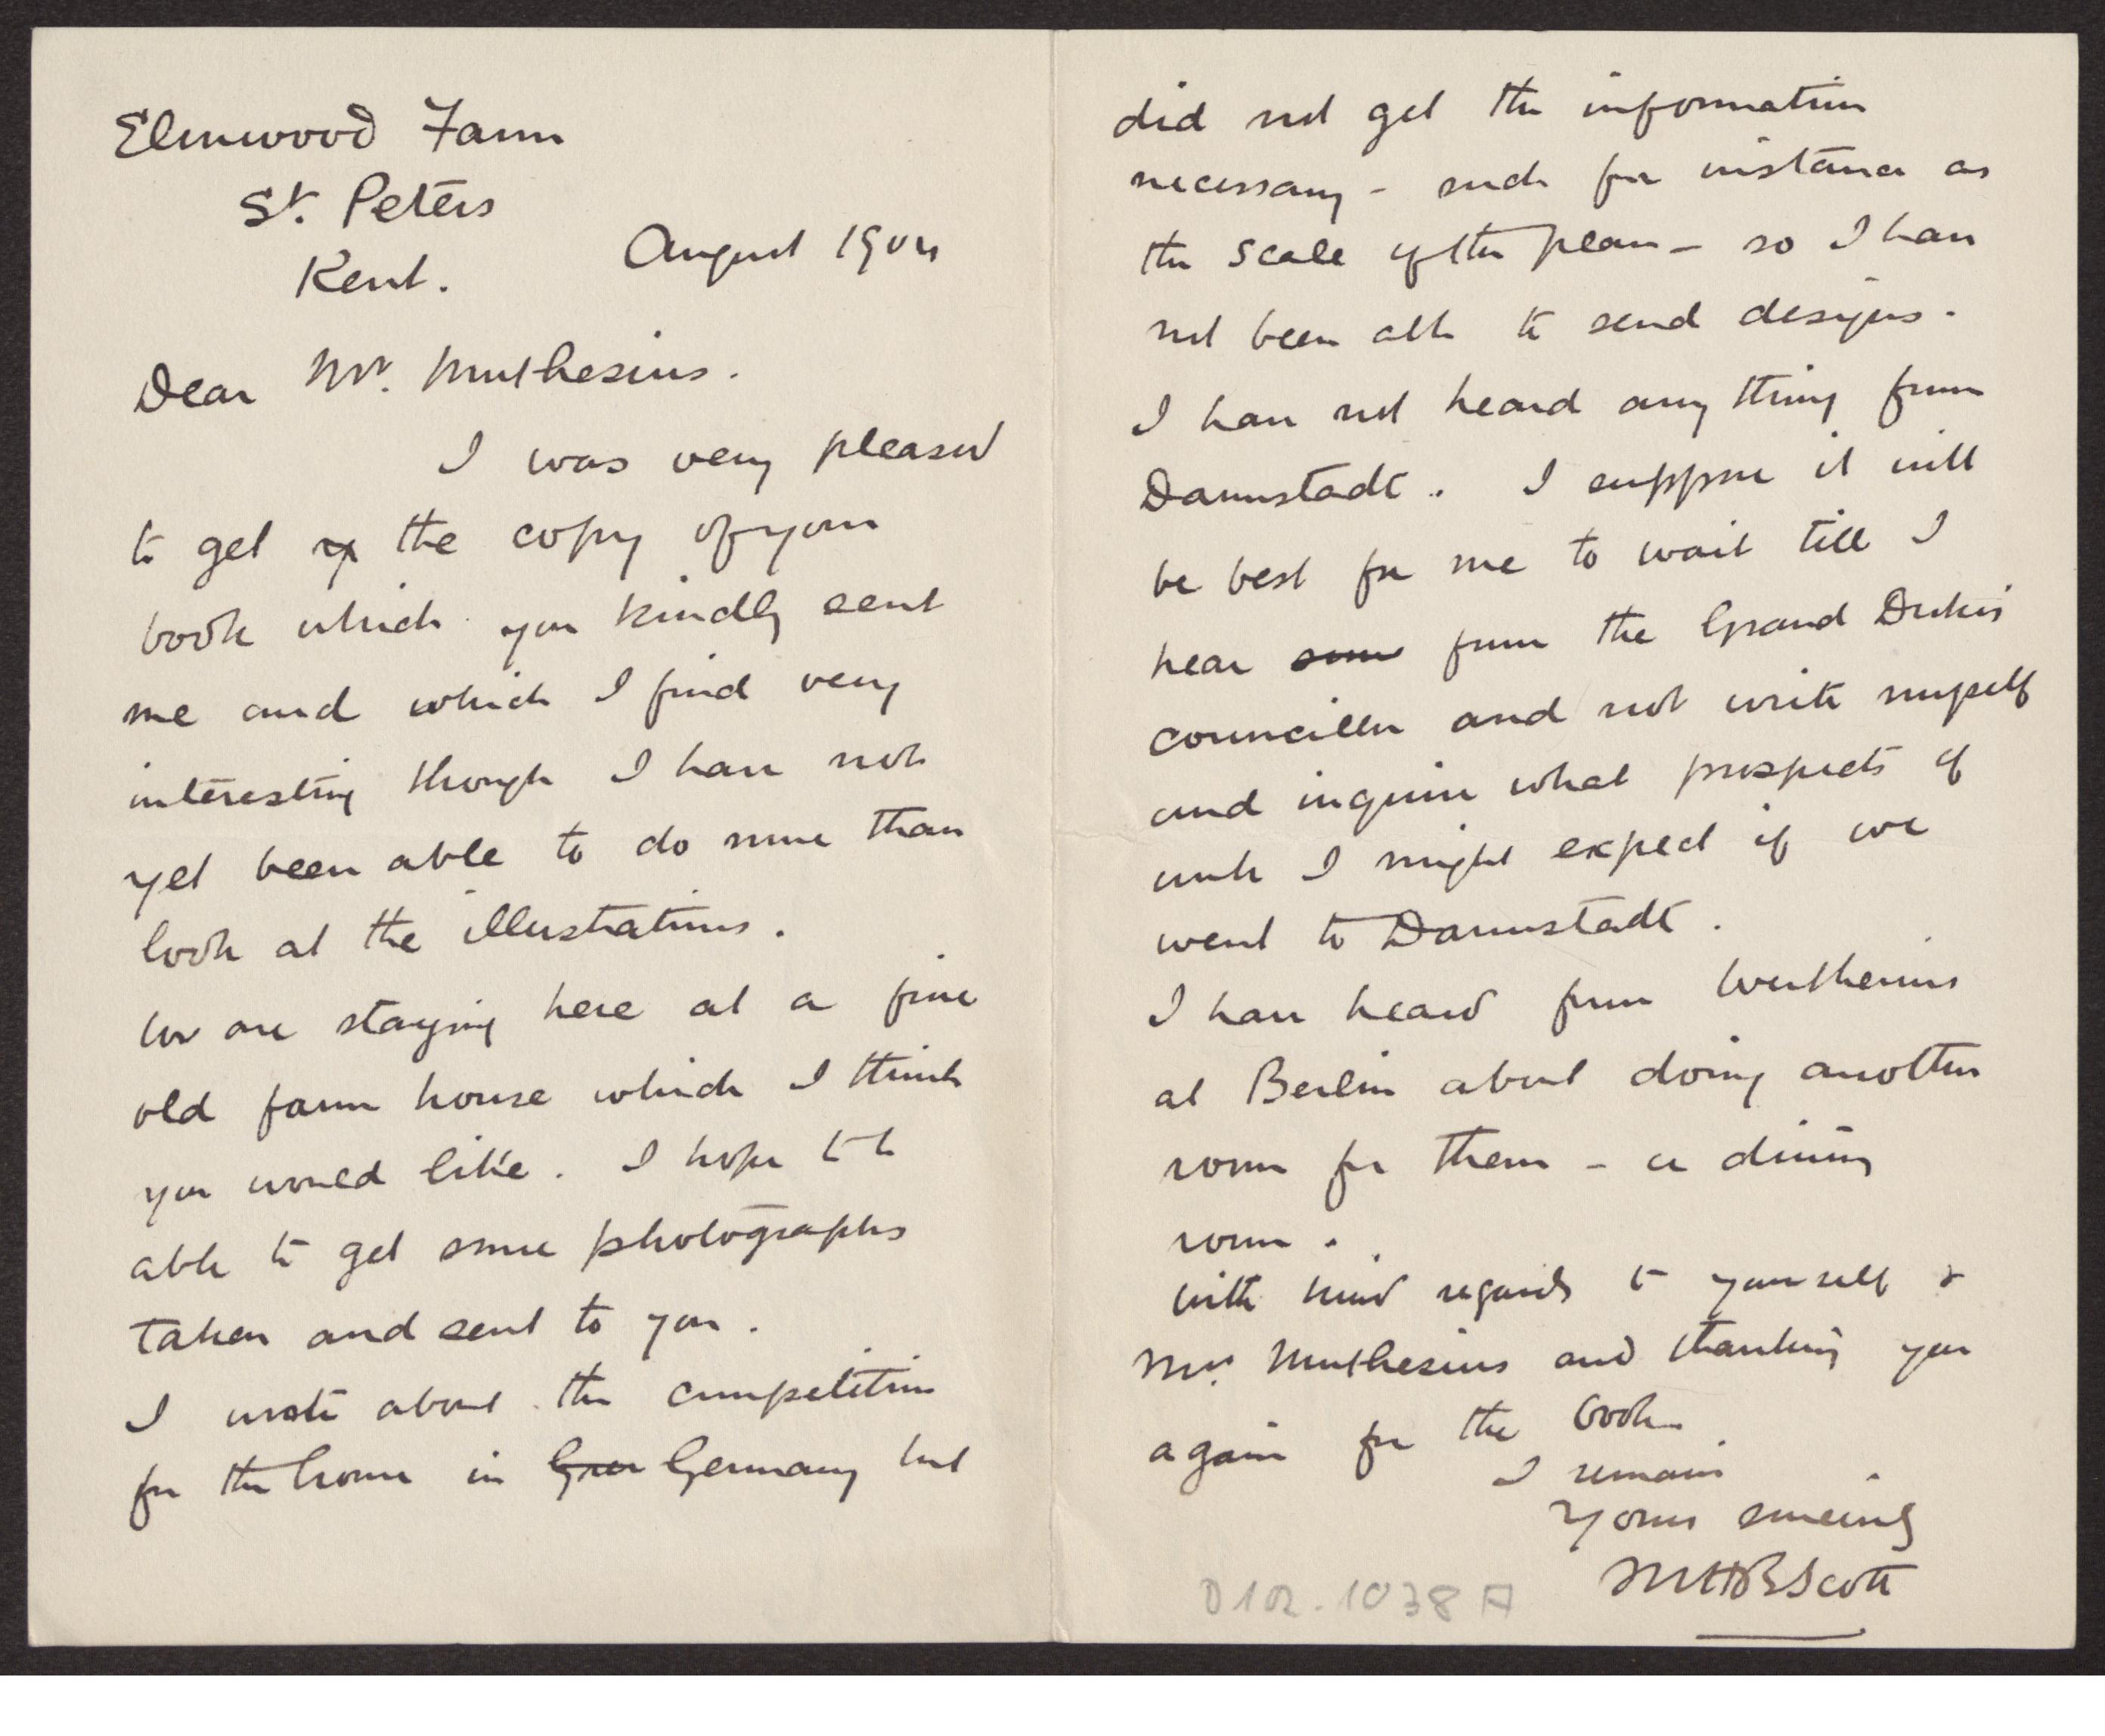 Elmwood Farm
St. Peters
Kent.
August 1904
Dear Mr. Muthesius.
I was very pleased
to get the copy of your
book which you kindly sent
me and which I find very
interesting though I have not
yet been able to do more than
look at the illustrations.
We are staying here at a fine
old farm house which I think
you would like. I hope to be
able to get some photographs
taken and sent to you.
I wrote about the competition
for the house in Ger Germany but
did not get the information
necessary - such for instance as
the scale of the plan - so I have
not been able to send designs.
I have not heard any thing from
Darmstadt. I suppose it will
be best for me to wait till I
hear some from the Grand Duke's
councillor and not write myself
and inquire what prospects of
work I might expect if we
went to Darmstadt.
I have heard from Wertheims
at Berlin about doing another
room for them - a dining
room.
With kind regards to yourself &
Mrs. Muthesius and thanking you
again for the book
I remain
Yours sincerely
MHBScott
D102.1038 A